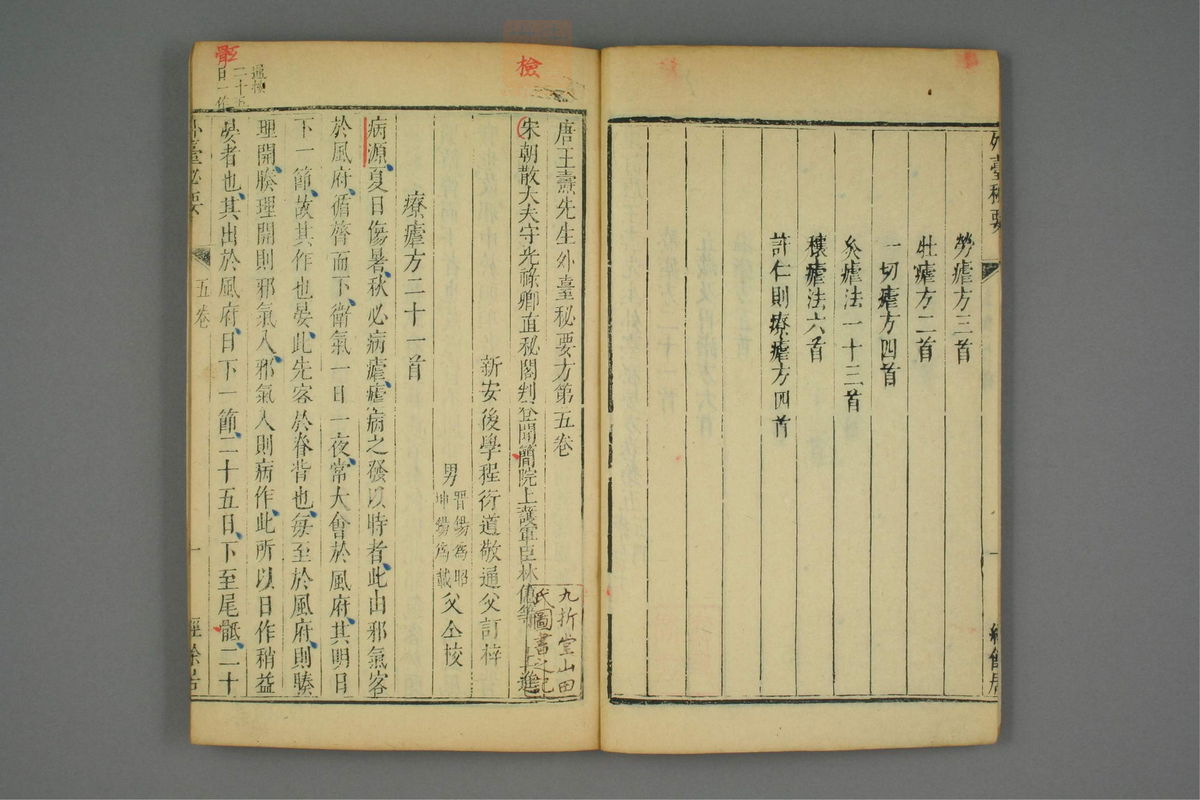 外臺秘要
勞瘧方三首
牡瘧方二首
一切瘧方四首
灸瘧法一十三首
禳瘧法六首
許仁則療瘧方四首
一
經餘居
檢
唐王燾先生外臺秘要方第五卷
宋朝散大夫守光祿卿直秘閣判登聞簡院上護軍臣林億等 上進
九折堂山田
氏圖書之記
新安後學程衍道敬通父訂梓
男
晋錫爲昭
坤錫爲載
父仝校
療瘧方二十一首
病源夏日傷暑秋必病瘧瘧病之發以時者此由邪氣客
於風府循膂而下衛氣一日一夜常大會於風府其明日
下一節故其作也晏此先客於脊背也每至於風府則腠
理開腠理開則邪氣入邪氣入則病作此所以日作稍益
晏者也其出於風府日下一節二十五日下至尾骶二十
骶
二十五
日一作
外臺秘要
五卷
一
經餘居